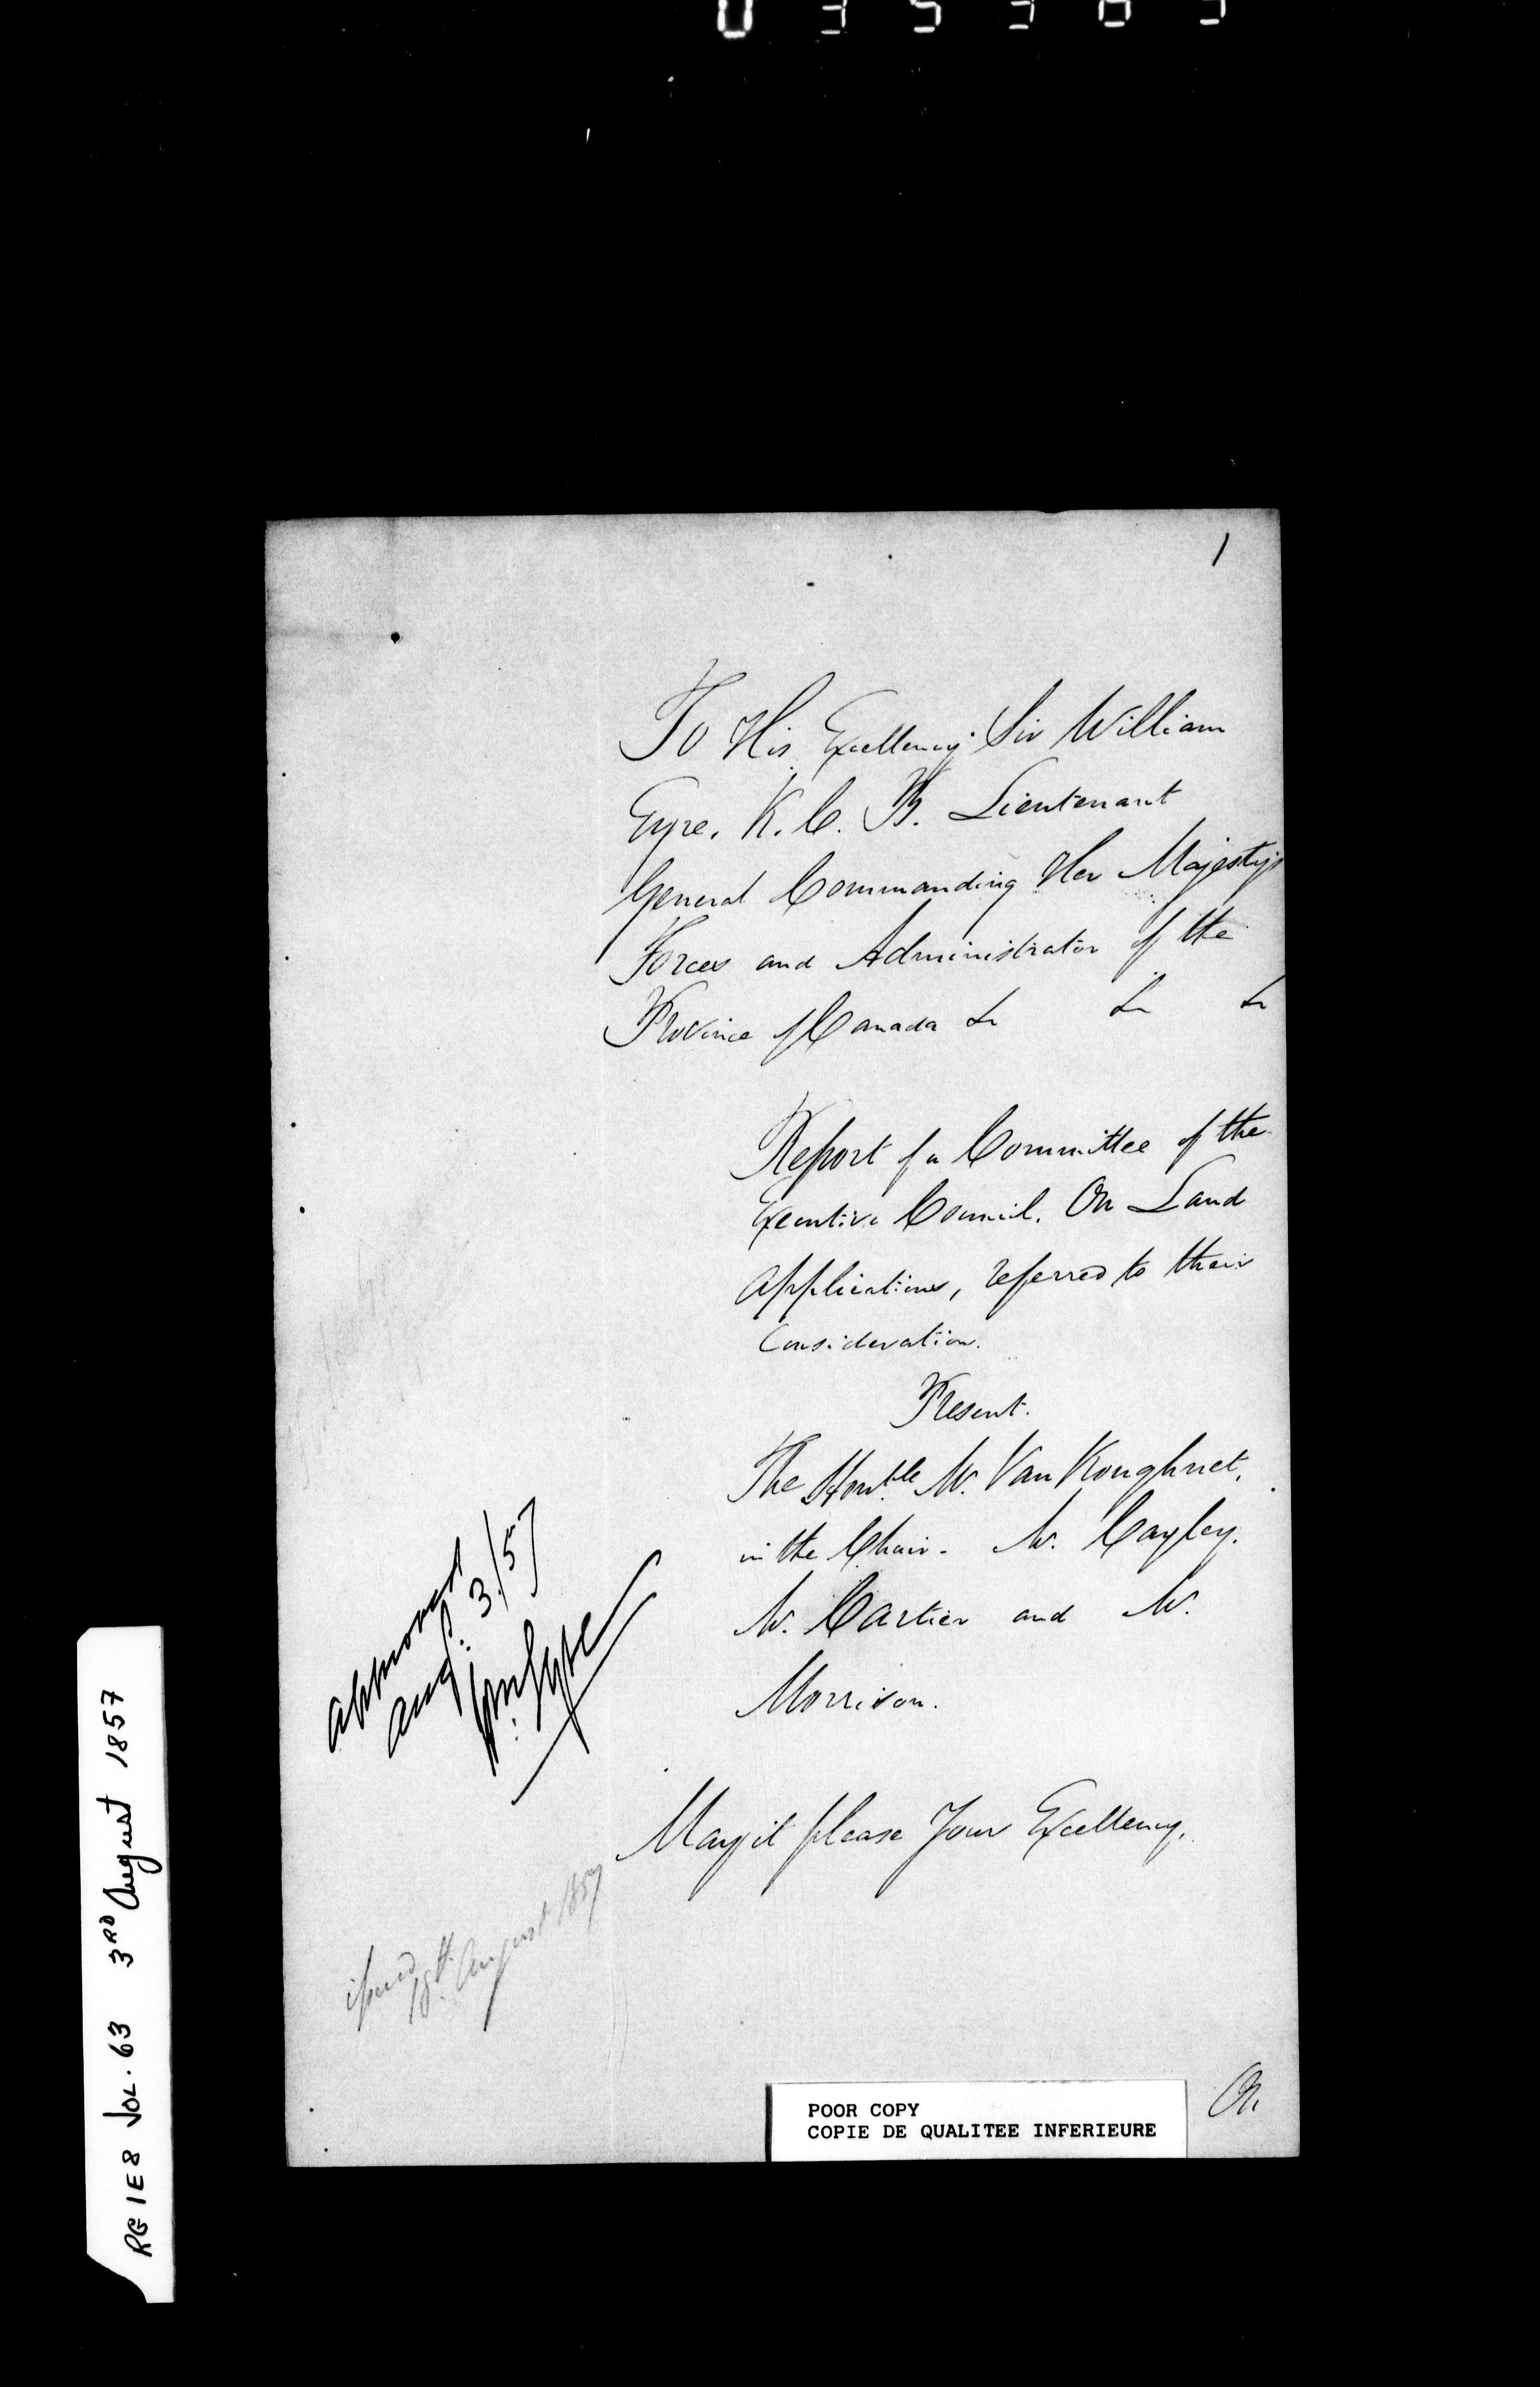 1
To His Excellency Sir William
Eyre. K. C. B. Lieutenant
General Commanding Her Majesty's
Forces and Administrator of the
Province of Canada &c &c &c
Report of a Committee of the
Executive Council. On Land
Applications, referred to their
Consideration.
Present.
The Honble. Mr. VanKoughnet.
in the Chair - Mr. Cayley.
Mr. Cartier and Mr.
Morrison.
May it please Your Excellency.
On
approved
Augt. 3./57
Wm Eyre
issued
18th. August 1857
RG 1 E8 VOL. 63 3RD August 1857
POOR COPY
COPIE DE QUALITEE INFERIEURE